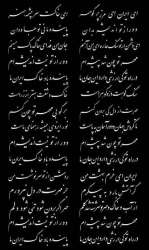 ای ایران ای مرز پر گهر
ای خاکت سرچشمه هنر
دور از تو اندیشه بدان
پاینده مانی تو جاودان
ای دشمن ار تو سنگ خاره‌ای من آهنم
جان من فدای خاک پاک میهنم
مهر تو چون شد پیشه‌ام
دور از تو نیست اندیشه‌ام
در راه تو کی ارزشی دارد این جان ما
پاینده باد خاک ایران ما
سنگ کوهت در و گوهر است
خاک دشتت بهتر از زر است
مهرت از دل کی برون کنم
برگو بی مهر تو چون کنم
تا گردش جهان و دور آسمان بپاست
نور ایزدی همیشه رهنمای ماست
مهر تو چون شد پیشه‌ام
دور از تو نیست اندیشه‌ام
در راه تو کی ارزشی دارد این جان ما
پاینده باد خاک ایران ما
ایران ای خرم بهشت من
روشن از تو سرنوشت من
گر آتش بارد به پیکرم
جز مهرت در دل نپرورم
از آب و خاک و مهر تو سرشته شد گلم
مهر اگر برون رود تهی شود دلم
مهر تو چون شد پیشه‌ام
دور از تو نیست اندیشه‌ام
در راه تو کی ارزشی دارد این جان ما
پاینده باد خاک ایران ما